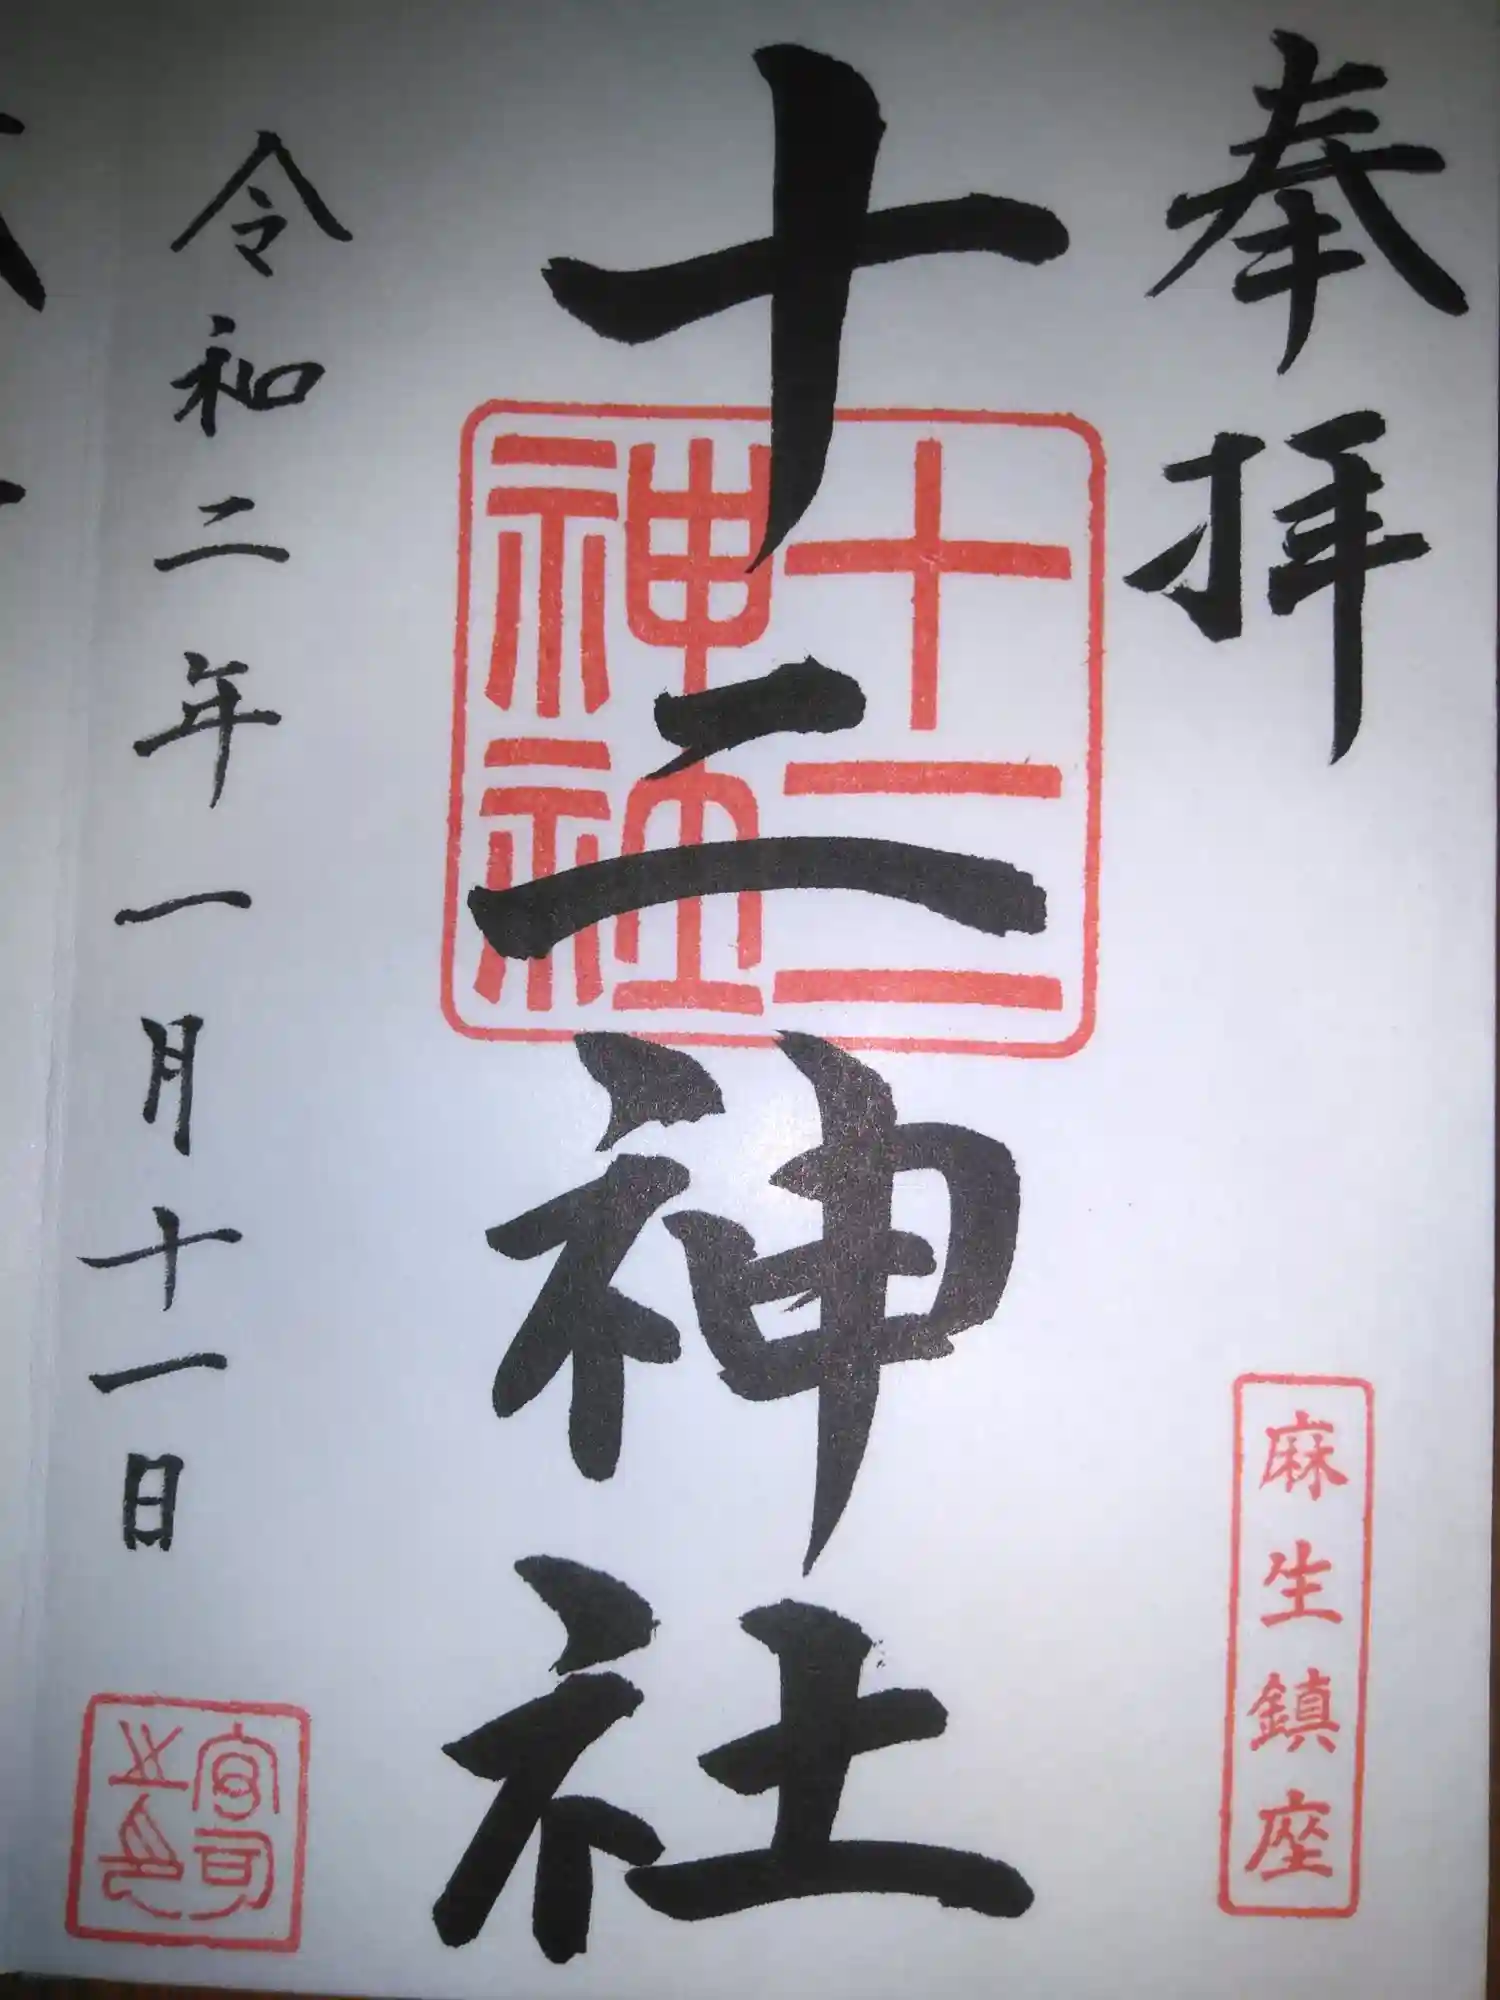 奉拝
麻生鎮座
十二神社
十二
神社
令和二年一月十一日
宮司
之印